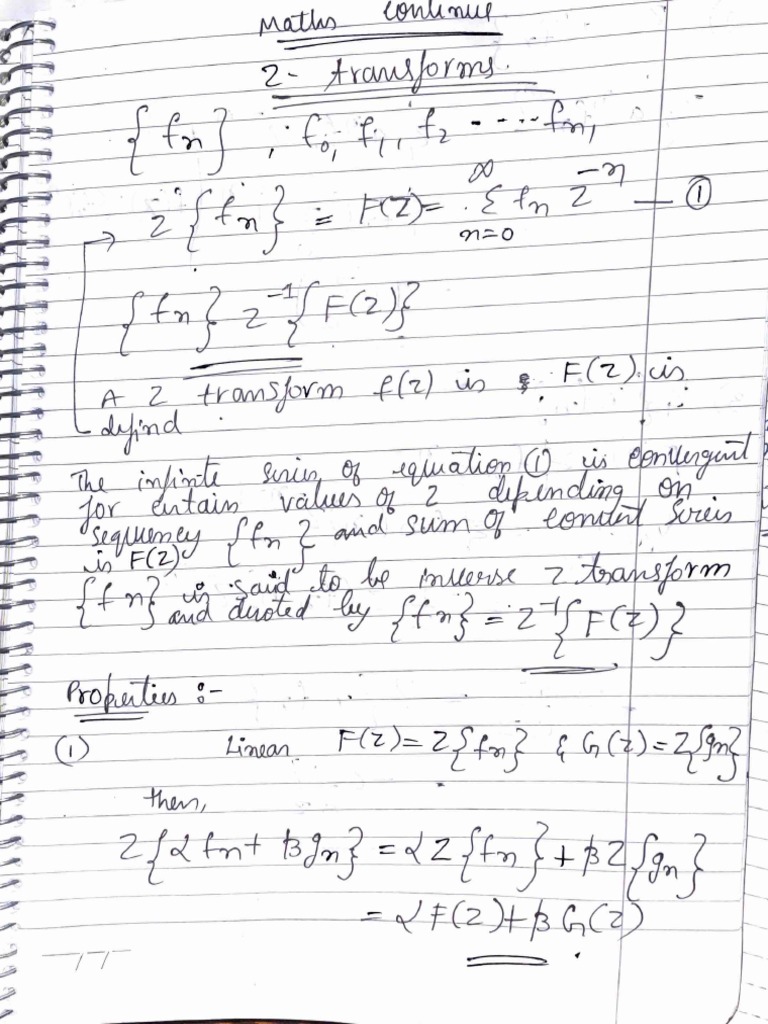 Maths continue
Z- transforms.
{fn} , f0, f1, f2 ----- fn,
Z{fn} = F(Z) = Σ fn Z^-n — ①
∞
n=0
{fn} Z^-1{F(Z)}
A Z transform f(z) is F(Z) is
defind
The infinite series of equation ① is convergent
for certain values of Z depending on
sequency {fn} and sum of series
is F(Z)
{fn} is said to be inverse Z transform
and denoted by {fn} = Z^-1{F(Z)}
Properties :-
(1) Linear F(Z) = Z{fn} & G(Z) = Z{gn}
then,
Z{α fn + β gn} = α Z{fn} + β Z{gn}
= α F(Z) + β G(Z)